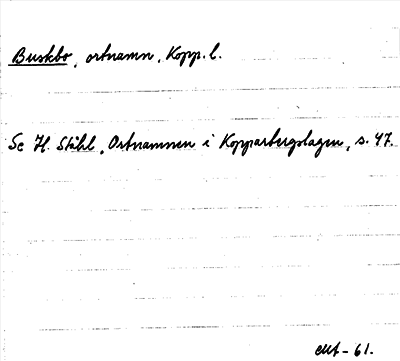 Buskbo, ortnamn, Kopp. l.
Se H. Ståhl, Ortnamnen i Kopparbergslagen, s. 47.
- 61.